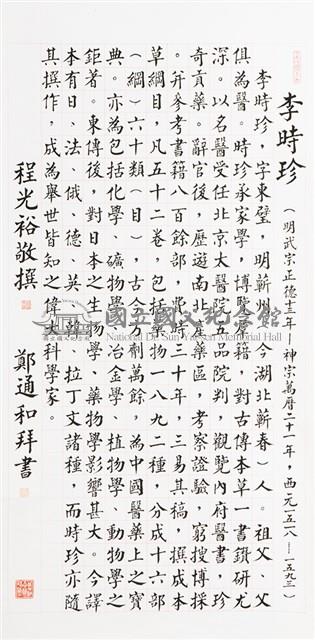 李時珍(明武宗正德十三年—神宗萬曆二十一年,西元一五一八—一五九三)
李時珍,字東璧,明蘄州(今湖北蘄春)人。祖父、父
俱為醫。時珍承家學,博覽羣籍,對古傳本草一書鑽研尤
深。以名醫受任北京太醫院五品院判,觀覽內府醫書,珍
奇貢藥。辭官後,歷遊南北藥區,考察證驗,窮搜博採
。并參考書籍八百餘部,費時三十年,三易其稿,撰成本
草綱目,凡五十二卷,包括藥物一八九二種,分成十六部
(綱)六十類(目),古今方劑萬餘,為中國醫藥上之寶
典。亦為包括化學、礦物學、冶金學、植物學、動物學之
鉅著。東傳後,對日本之生物學、藥物學影響甚大。今譯
本有日、法、俄、德、英、韓、拉丁文諸種,而時珍亦隨
其撰作,成為舉世皆知之偉大科學家。
程光裕敬撰 鄭通和拜書
國立國父紀念館
National Dr. Sun Yat-sen Memorial Hall